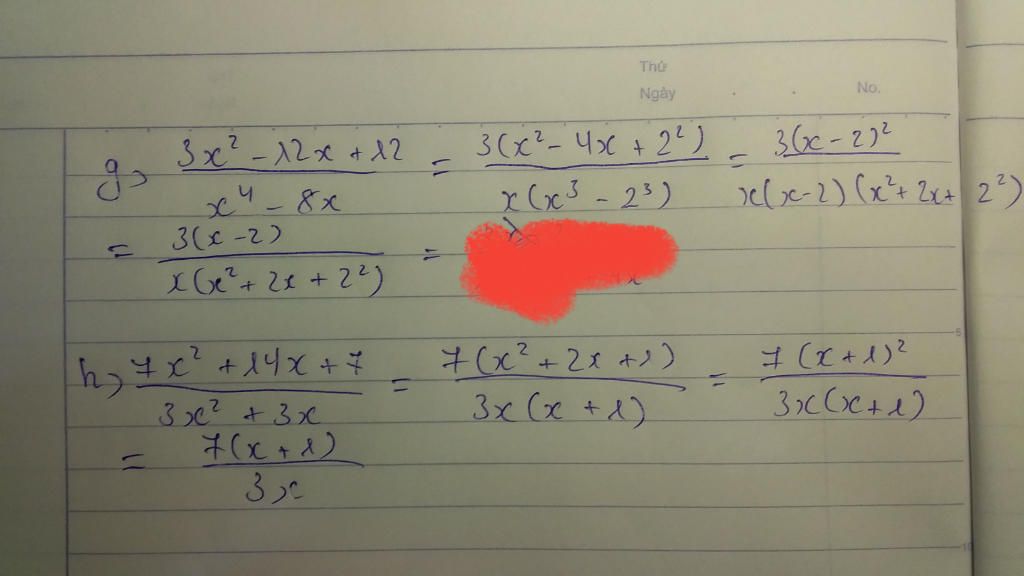 Thứ
Ngày
No.
g, (3x² - 12x + 12)/(x⁴ - 8x) = 3(x² - 4x + 2²)/(x(x³ - 2³)) = 3(x - 2)²/(x(x-2)(x² + 2x + 2²))
= 3(x - 2)/(x(x² + 2x + 2²)) =
5
h, (7x² + 14x + 7)/(3x² + 3x) = 7(x² + 2x + 1)/(3x(x + 1)) = 7(x + 1)²/(3x(x + 1))
= 7(x + 1)/(3x)
10